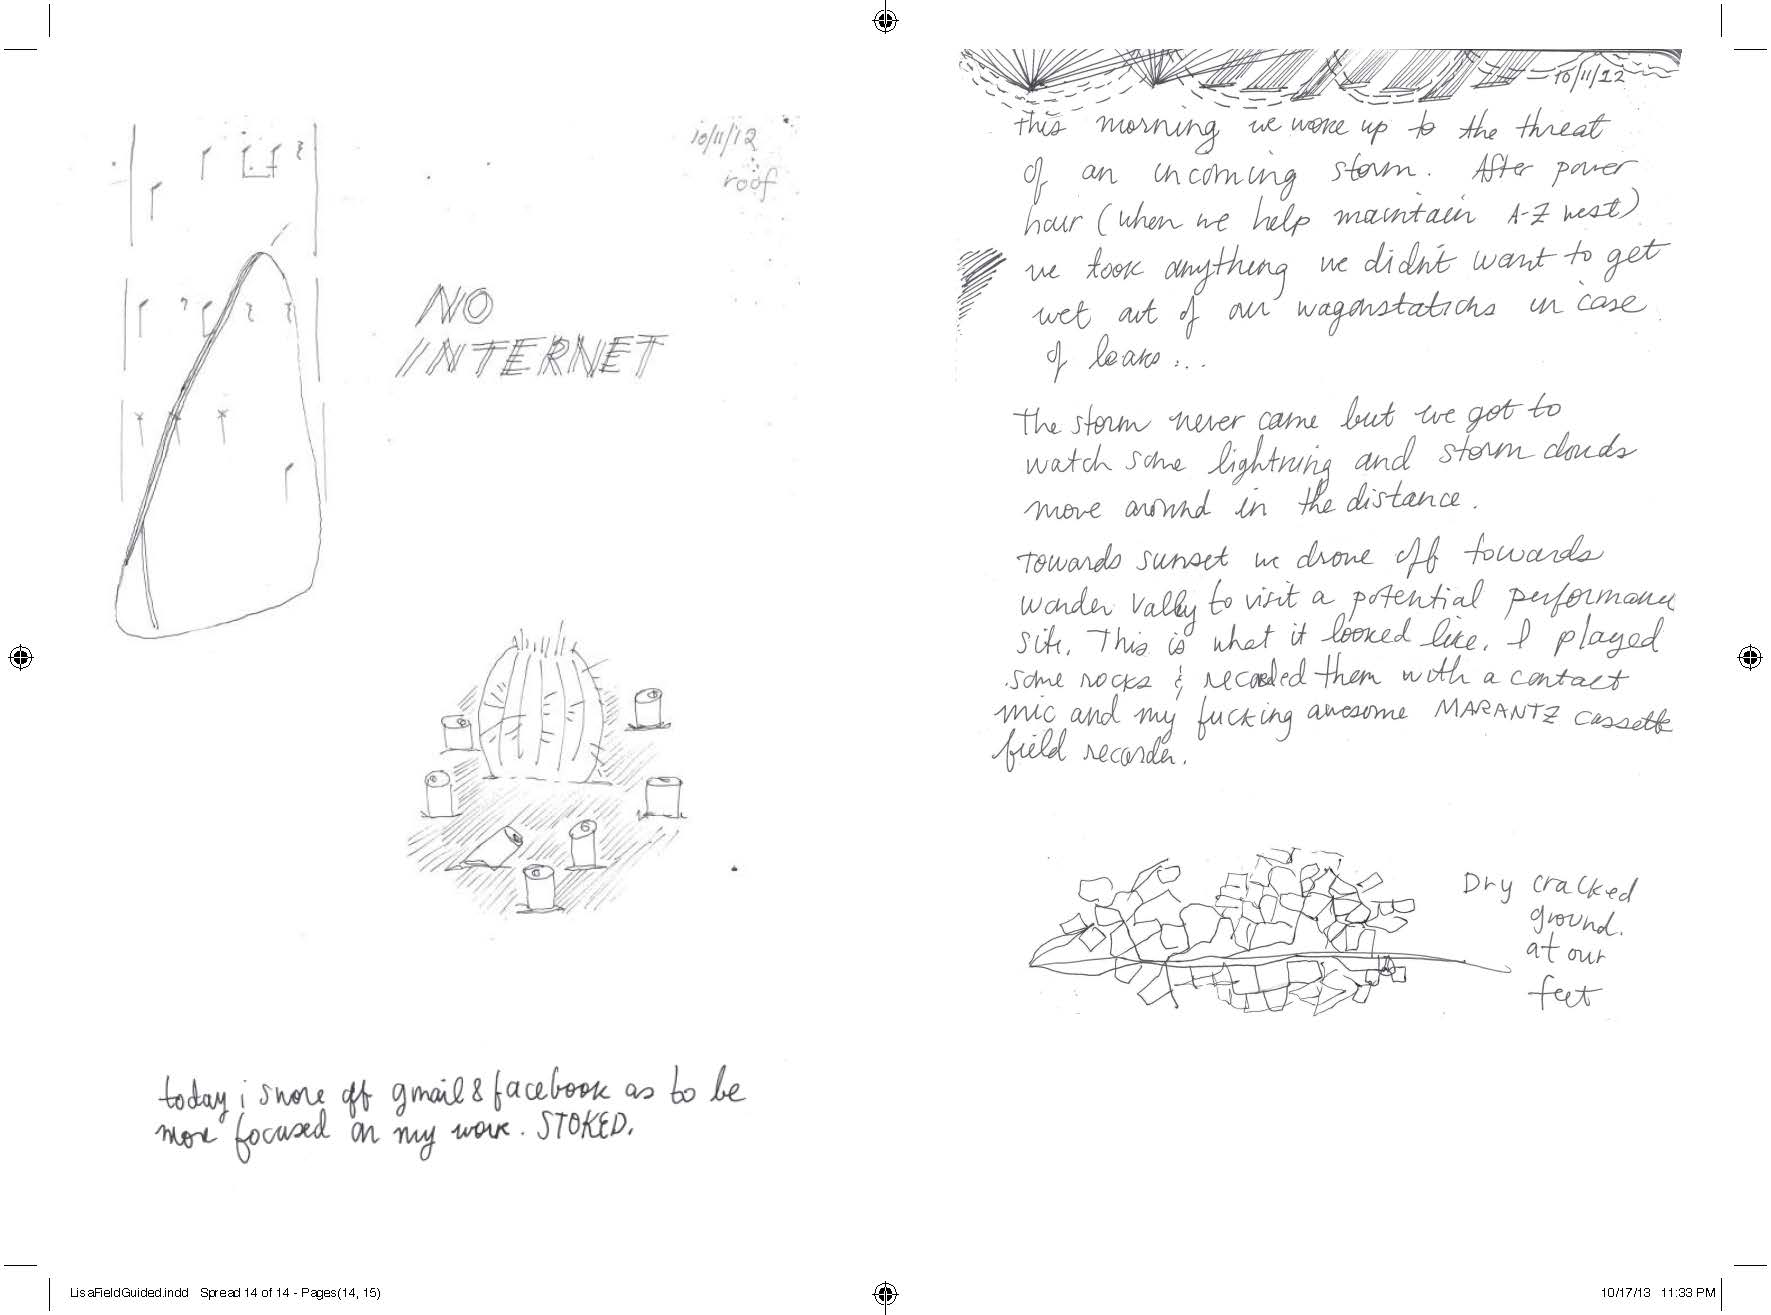 10/11/12
roof
NO
INTERNET
today i swore off gmail & facebook as to be
more focused on my work. STOKED.
10/11/12
this morning we woke up to the threat
of an incoming storm. After power
hour (when we help maintain A-Z west)
we took anything we didn't want to get
wet out of our wagonstations in case
of leaks...
The storm never came but we got to
watch some lightning and storm clouds
move around in the distance.
Towards sunset we drove off towards
wonder valley to visit a potential performance
site. This is what it looked like. I played
some rocks & recorded them with a contact
mic and my fucking awesome MARANTZ cassette
field recorder.
Dry cracked
ground.
at our
feet
LisaFieldGuided.indd Spread 14 of 14 - Pages(14, 15)
10/17/13 11:33 PM